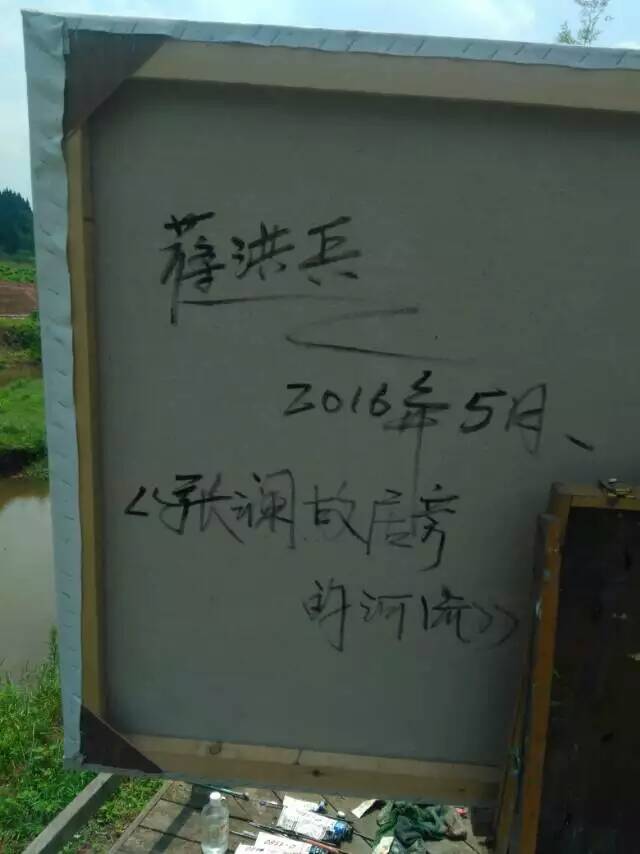 蒋洪兵
2016年5月、
《张澜故居旁
的河流》